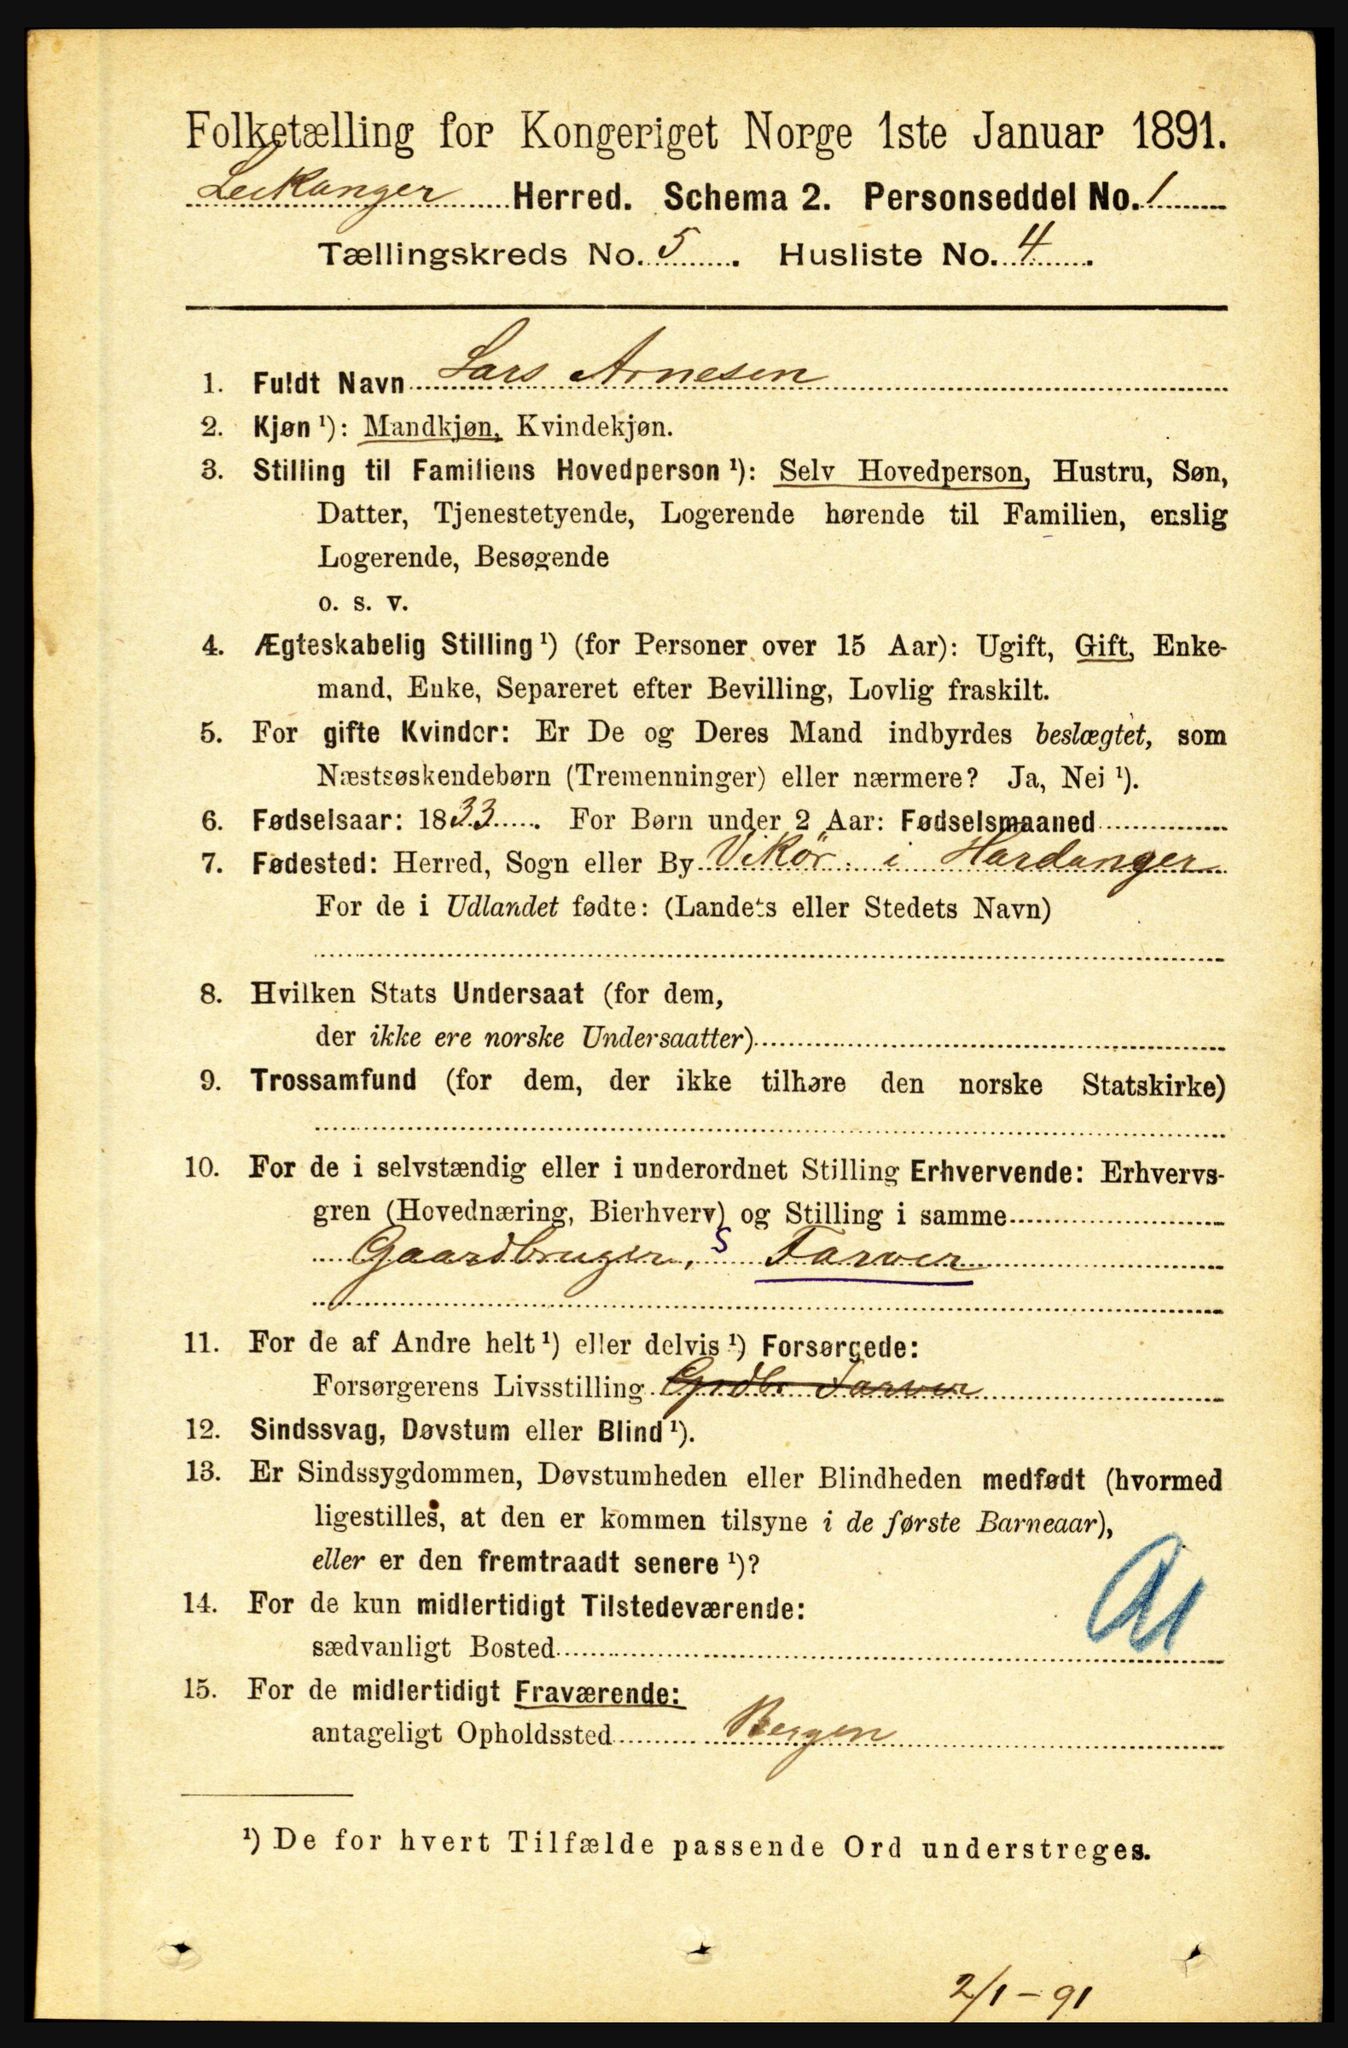 Folketælling for Kongeriget Norge 1ste Januar 1891.
Leikanger Herred. Schema 2. Personseddel No. 1
Tællingskreds No. 5. Husliste No. 4.
1. Fuldt Navn Lars Arnesen
2. Kjøn ¹): Mandkjøn, Kvindekjøn.
3. Stilling til Familiens Hovedperson ¹): Selv Hovedperson, Hustru, Søn,
Datter, Tjenestetyende, Logerende hørende til Familien, enslig
Logerende, Besøgende
o. s. v.
4. Ægteskabelig Stilling ¹) (for Personer over 15 Aar): Ugift, Gift, Enke-
mand, Enke, Separeret efter Bevilling, Lovlig fraskilt.
5. For gifte Kvinder: Er De og Deres Mand indbyrdes beslægtet, som
Næstsøskendebørn (Tremenninger) eller nærmere? Ja, Nei ¹).
6. Fødselsaar: 1833. For Børn under 2 Aar: Fødselsmaaned
7. Fødested: Herred, Sogn eller By Vikør i Hardanger
For de i Udlandet fødte: (Landets eller Stedets Navn)
8. Hvilken Stats Undersaat (for dem,
der ikke ere norske Undersaatter)
9. Trossamfund (for dem, der ikke tilhøre den norske Statskirke)
10. For de i selvstændig eller i underordnet Stilling Erhvervende: Erhvervs-
gren (Hovednæring, Bierhverv) og Stilling i samme
Gaardbruger, s Farver
11. For de af Andre helt ¹) eller delvis ¹) Forsørgede:
Forsørgerens Livsstilling Grdb. Farver
12. Sindssvag, Døvstum eller Blind ¹).
13. Er Sindssygdommen, Døvstumheden eller Blindheden medfødt (hvormed
ligestilles, at den er kommen tilsyne i de første Barneaar),
eller er den fremtraadt senere ¹)?
14. For de kun midlertidigt Tilstedeværende:
sædvanligt Bosted
15. For de midlertidigt Fraværende:
antageligt Opholdssted Bergen
¹) De for hvert Tilfælde passende Ord understreges.
2/1-91